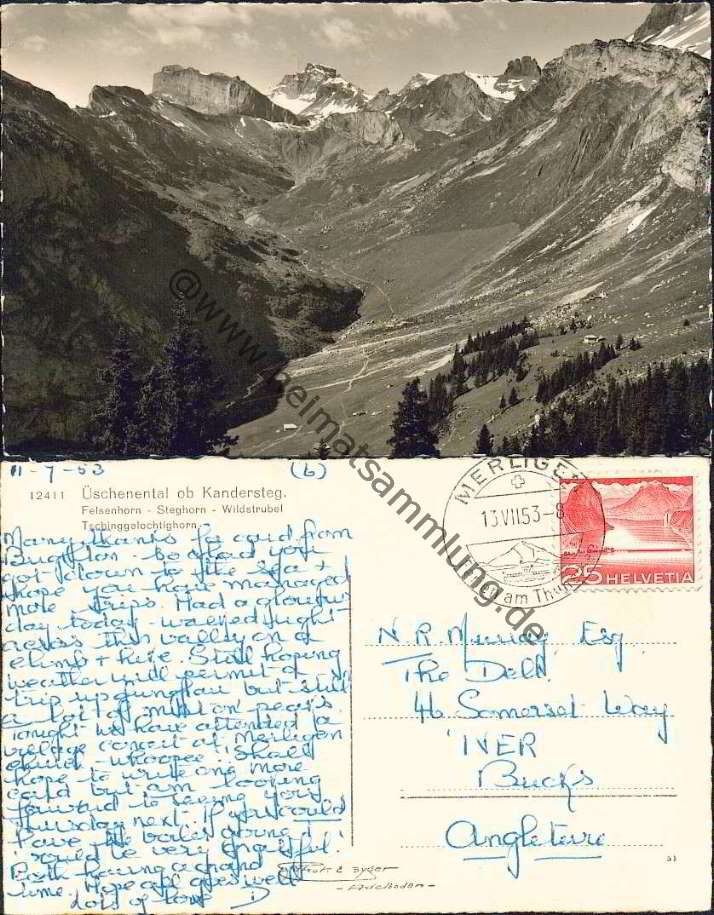 @www.heimatsammlung.de
11-7-53 (b)
12411 Üschenental ob Kandersteg.
Felsenhorn - Steghorn - Wildstrubel
Tschinggelochtighorn
Many thanks for card from
Brighton - be glad you
got down to the sea +
hope you have managed
more trips. Had a glorious
day today - walked right
across this valley on a
climb + hike. Still hoping
weather will permit of a
trip up Jungfrau but still
a lot of mist on peaks.
Tonight we have attended a
village concert at Merligen
- whoopee! Shall
hope to write one more
card but am looking
forward to seeing you
Thursday next. If you could
have the boiler going I
would be very grateful!
Both having a grand
time. Hope all goes well
Lots of love D
MERLIGEN
13.VII.53-8
am Thunersee
25 HELVETIA
N. R. Murray Esq
The Dell
46 Somerset Way
IVER
Bucks
Angleterre
Photo E. Gyger
- Adelboden -